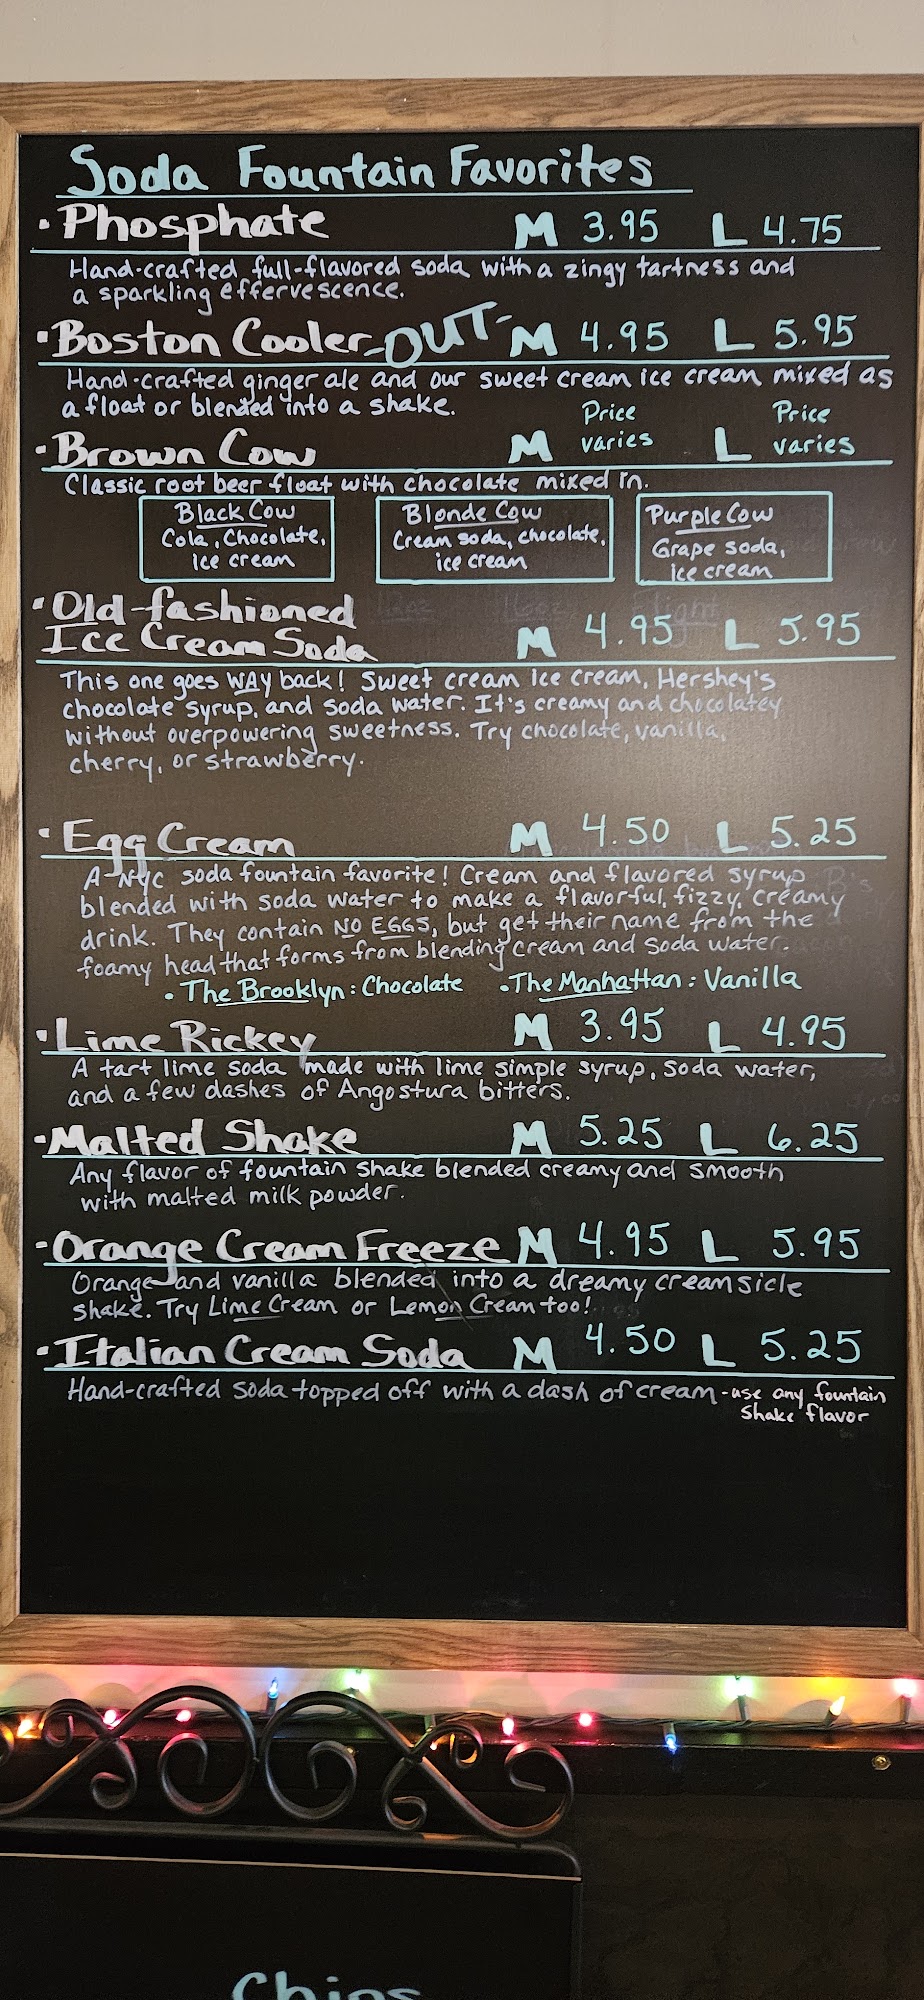 Soda Fountain Favorites
• Phosphate M 3.95 L 4.75
Hand-crafted, full-flavored soda with a zingy tartness and
a sparkling effervescence.
• Boston Cooler -OUT- M 4.95 L 5.95
Hand-crafted ginger ale and our sweet cream ice cream mixed as
a float or blended into a shake.
• Brown Cow M Price varies L Price varies
Classic root beer float with chocolate mixed in.
Black Cow
Cola, Chocolate,
ice cream
Blonde Cow
Cream soda, chocolate,
ice cream
Purple Cow
Grape soda,
ice cream
• Old-fashioned
Ice Cream Soda M 4.95 L 5.95
This one goes WAY back! Sweet cream ice cream, Hershey's
chocolate syrup, and soda water. It's creamy and chocolatey
without overpowering sweetness. Try chocolate, vanilla,
cherry, or strawberry.
• Egg Cream M 4.50 L 5.25
A NYC soda fountain favorite! Cream and flavored syrup
blended with soda water to make a flavorful, fizzy, creamy
drink. They contain NO EGGS, but get their name from the
foamy head that forms from blending cream and soda water.
• The Brooklyn: Chocolate • The Manhattan: Vanilla
• Lime Rickey M 3.95 L 4.95
A tart lime soda made with lime simple syrup, soda water,
and a few dashes of Angostura bitters.
• Malted Shake M 5.25 L 6.25
Any flavor of fountain shake blended creamy and smooth
with malted milk powder.
• Orange Cream Freeze M 4.95 L 5.95
Orange and vanilla blended into a dreamy creamsicle
shake. Try Lime Cream or Lemon Cream too!
• Italian Cream Soda M 4.50 L 5.25
Hand-crafted soda topped off with a dash of cream - use any fountain
shake flavor
Chips